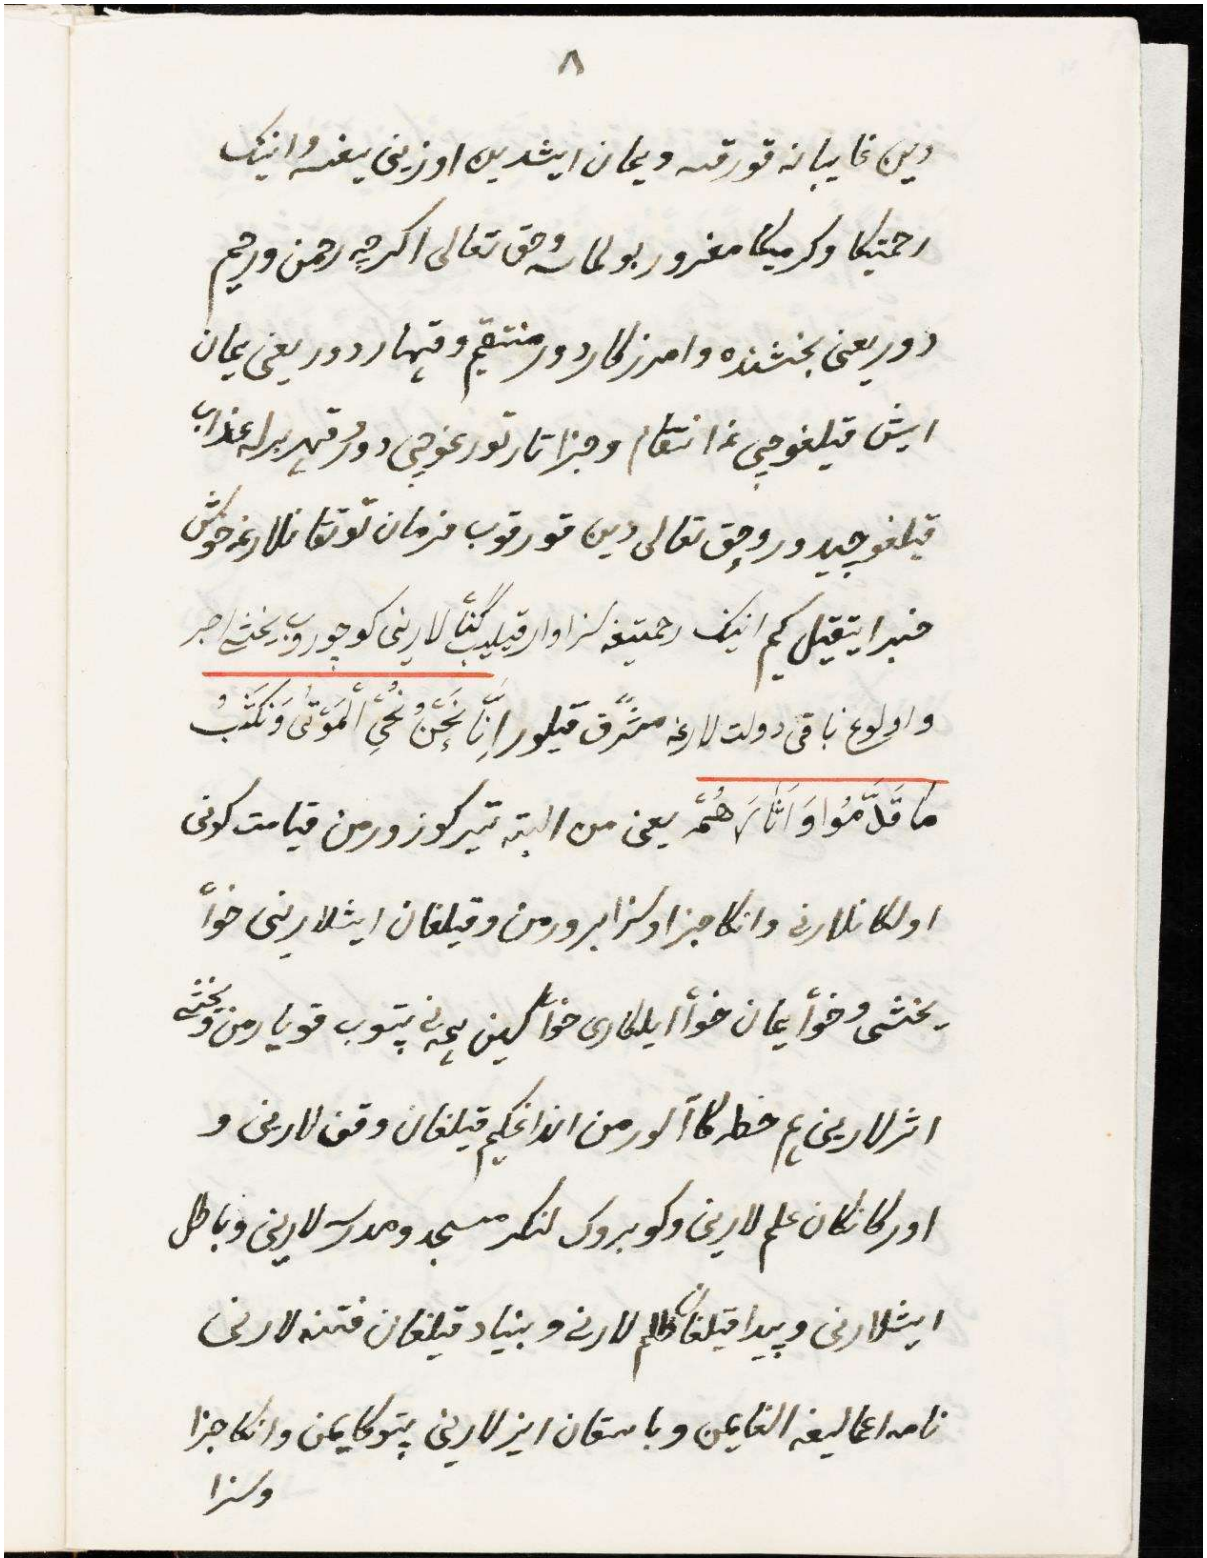 ٨
دین غایبانه قورقسه ویمان ایشدین اوزینی یغسه وانینک
رحمتیکا وکرمیکا مغرور بولماسه وحق تعالی اکرچه رحمن ورحیم
دور یعنی بخشنده وامرزکار دور منتقم وقهار دور یعنی یمان
ایش قیلغوچی غه انتقام وجزا تارتورغوچی دور وقهر برله عذاب
قیلغوچیدور وحق تعالی دین قورقوب فرمان توتقانلارغه خوش
خبر ایتقیل کیم انینک رحمتیغه سزاوار قیلیب کناه لارینی کوچورور ویخشی اجر
واولوغ باقی دولت لارغه مشرّف قیلور اِنَّا نَحْنُ نُحْیِ الْمَوْتٰی وَنَکْتُبُ
مَا قَدَّمُوا وَاٰثَارَهُمْ یعنی من البته تیرکوزورمن قیامت کونی
اولکانلارنی وانکا جزا وسزا برورمن وقیلغان ایشلارینی خواه
یخشی وخواه یمان خواه ایلکاری خواه کین همه نی پتیوب قویارمن ویخشی
اثرلارینی هم خطه کا آلورمن انداغکیم قیلغان وقف لارینی و
اورکانکان علم لارینی وکوبروک لنکر مسجد ومدرسه لارینی وباطل
ایشلارنی وپیدا قیلغان ظلم لارنی وبنیاد قیلغان فتنه لارنی
نامه اعمالیغه الغایمن وباسقان ایزلارینی پتوکایمن وانکا جزا
وسزا